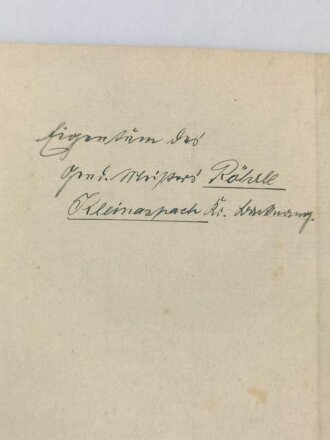 Eigentum des
Gend. Meisters Röhrle
Kleinaspach Kr. Backnang.